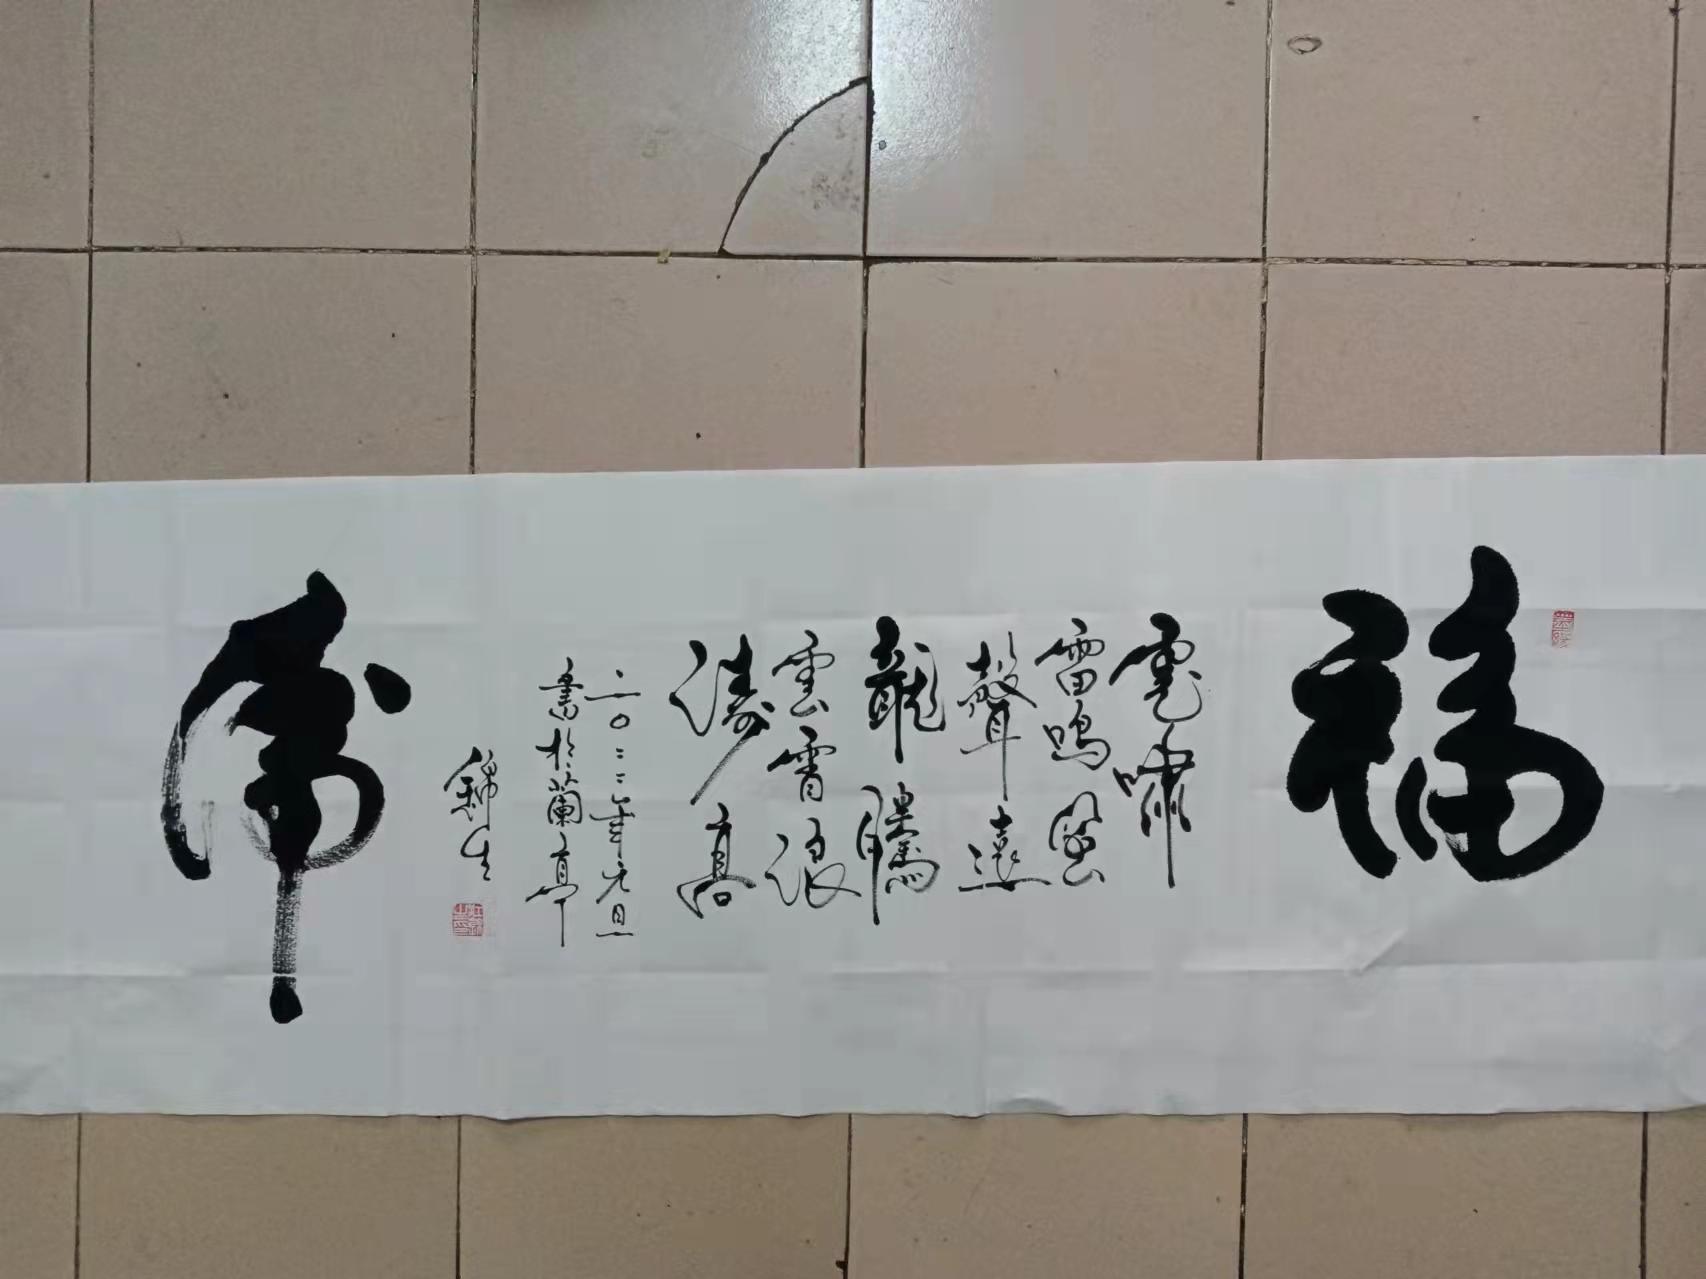 福
虎啸
雷鳴風
聲遠
龍騰
雲霄浪
濤高
二〇二二年元旦
書於蘭亭
錦生
虎